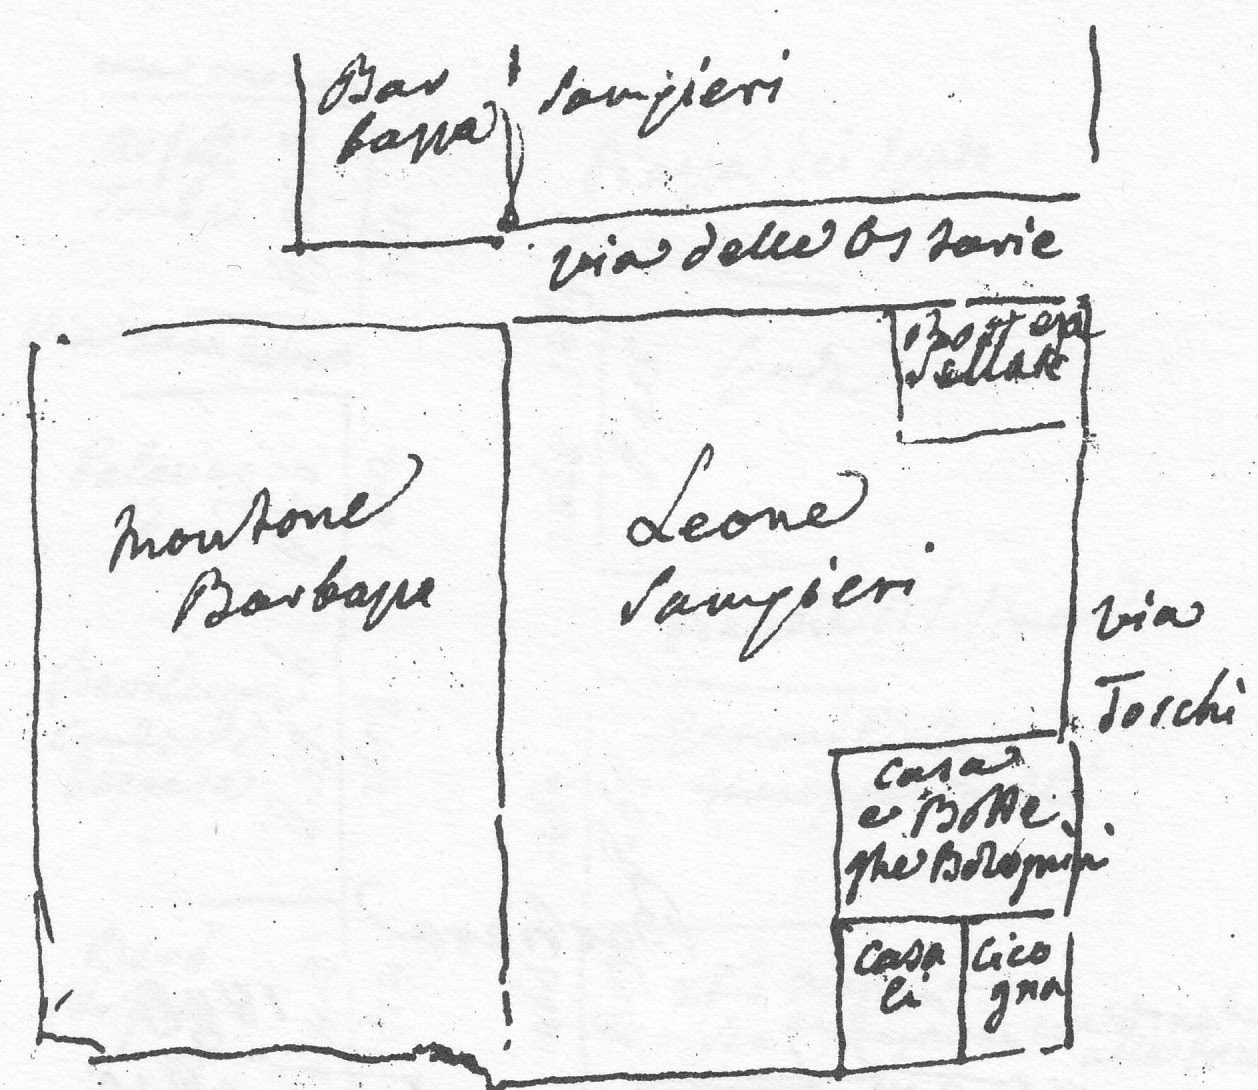 Bar
bazza
Sampieri
via delle Ostarie
Bottega
SellaR
Montone
Barbazza
Leone
Sampieri
via
Torchi
casa
e Botte
ghe Bolognini
casa
li
Cico
gna